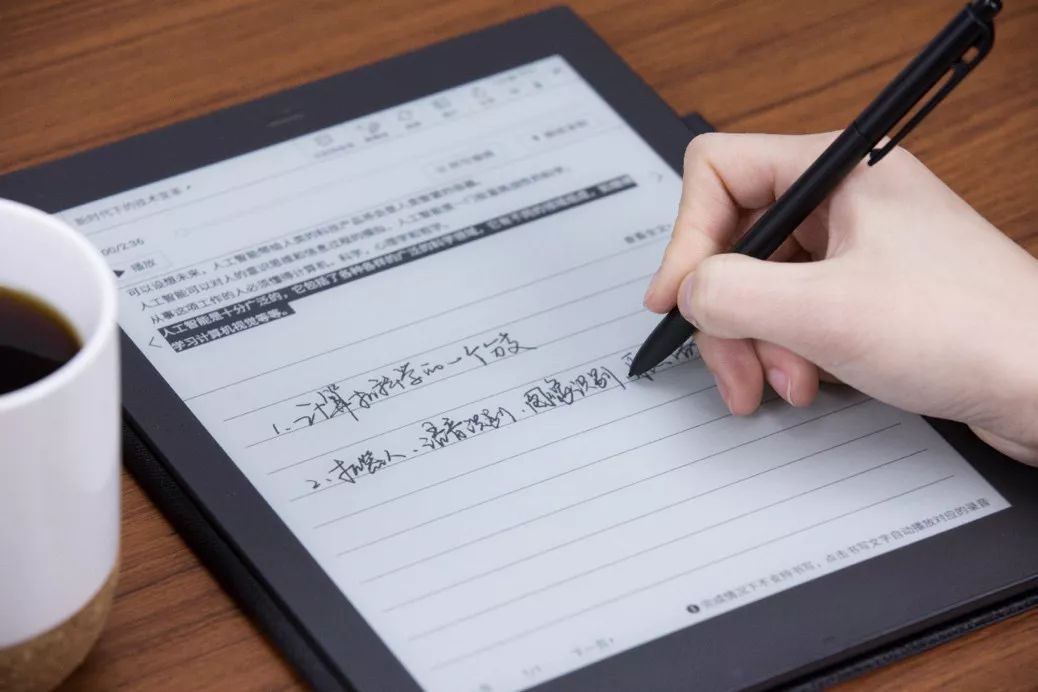 新时代下的技术变革
00/2:36
播放
可以设想未来,人工智能带给人类的科技产品将会是人类智慧的容器。
人工智能可以对人的意识思维和信息过程的模拟。人工智能是一门极富挑战性的科学,
从事这项工作的人必须懂得计算机,科学,心理学和哲学。
人工智能是十分广泛的,它包括了各种各样的广泛的科学领域,它有不同的领域组成,如机器
学习计算机视觉等等。
查看全文
1、计算机科学的一个分支
2、机器人、语音识别、图像识别
完成情况下不支持书写,点击书写文字自动播放对应的录音
1/1
下一页